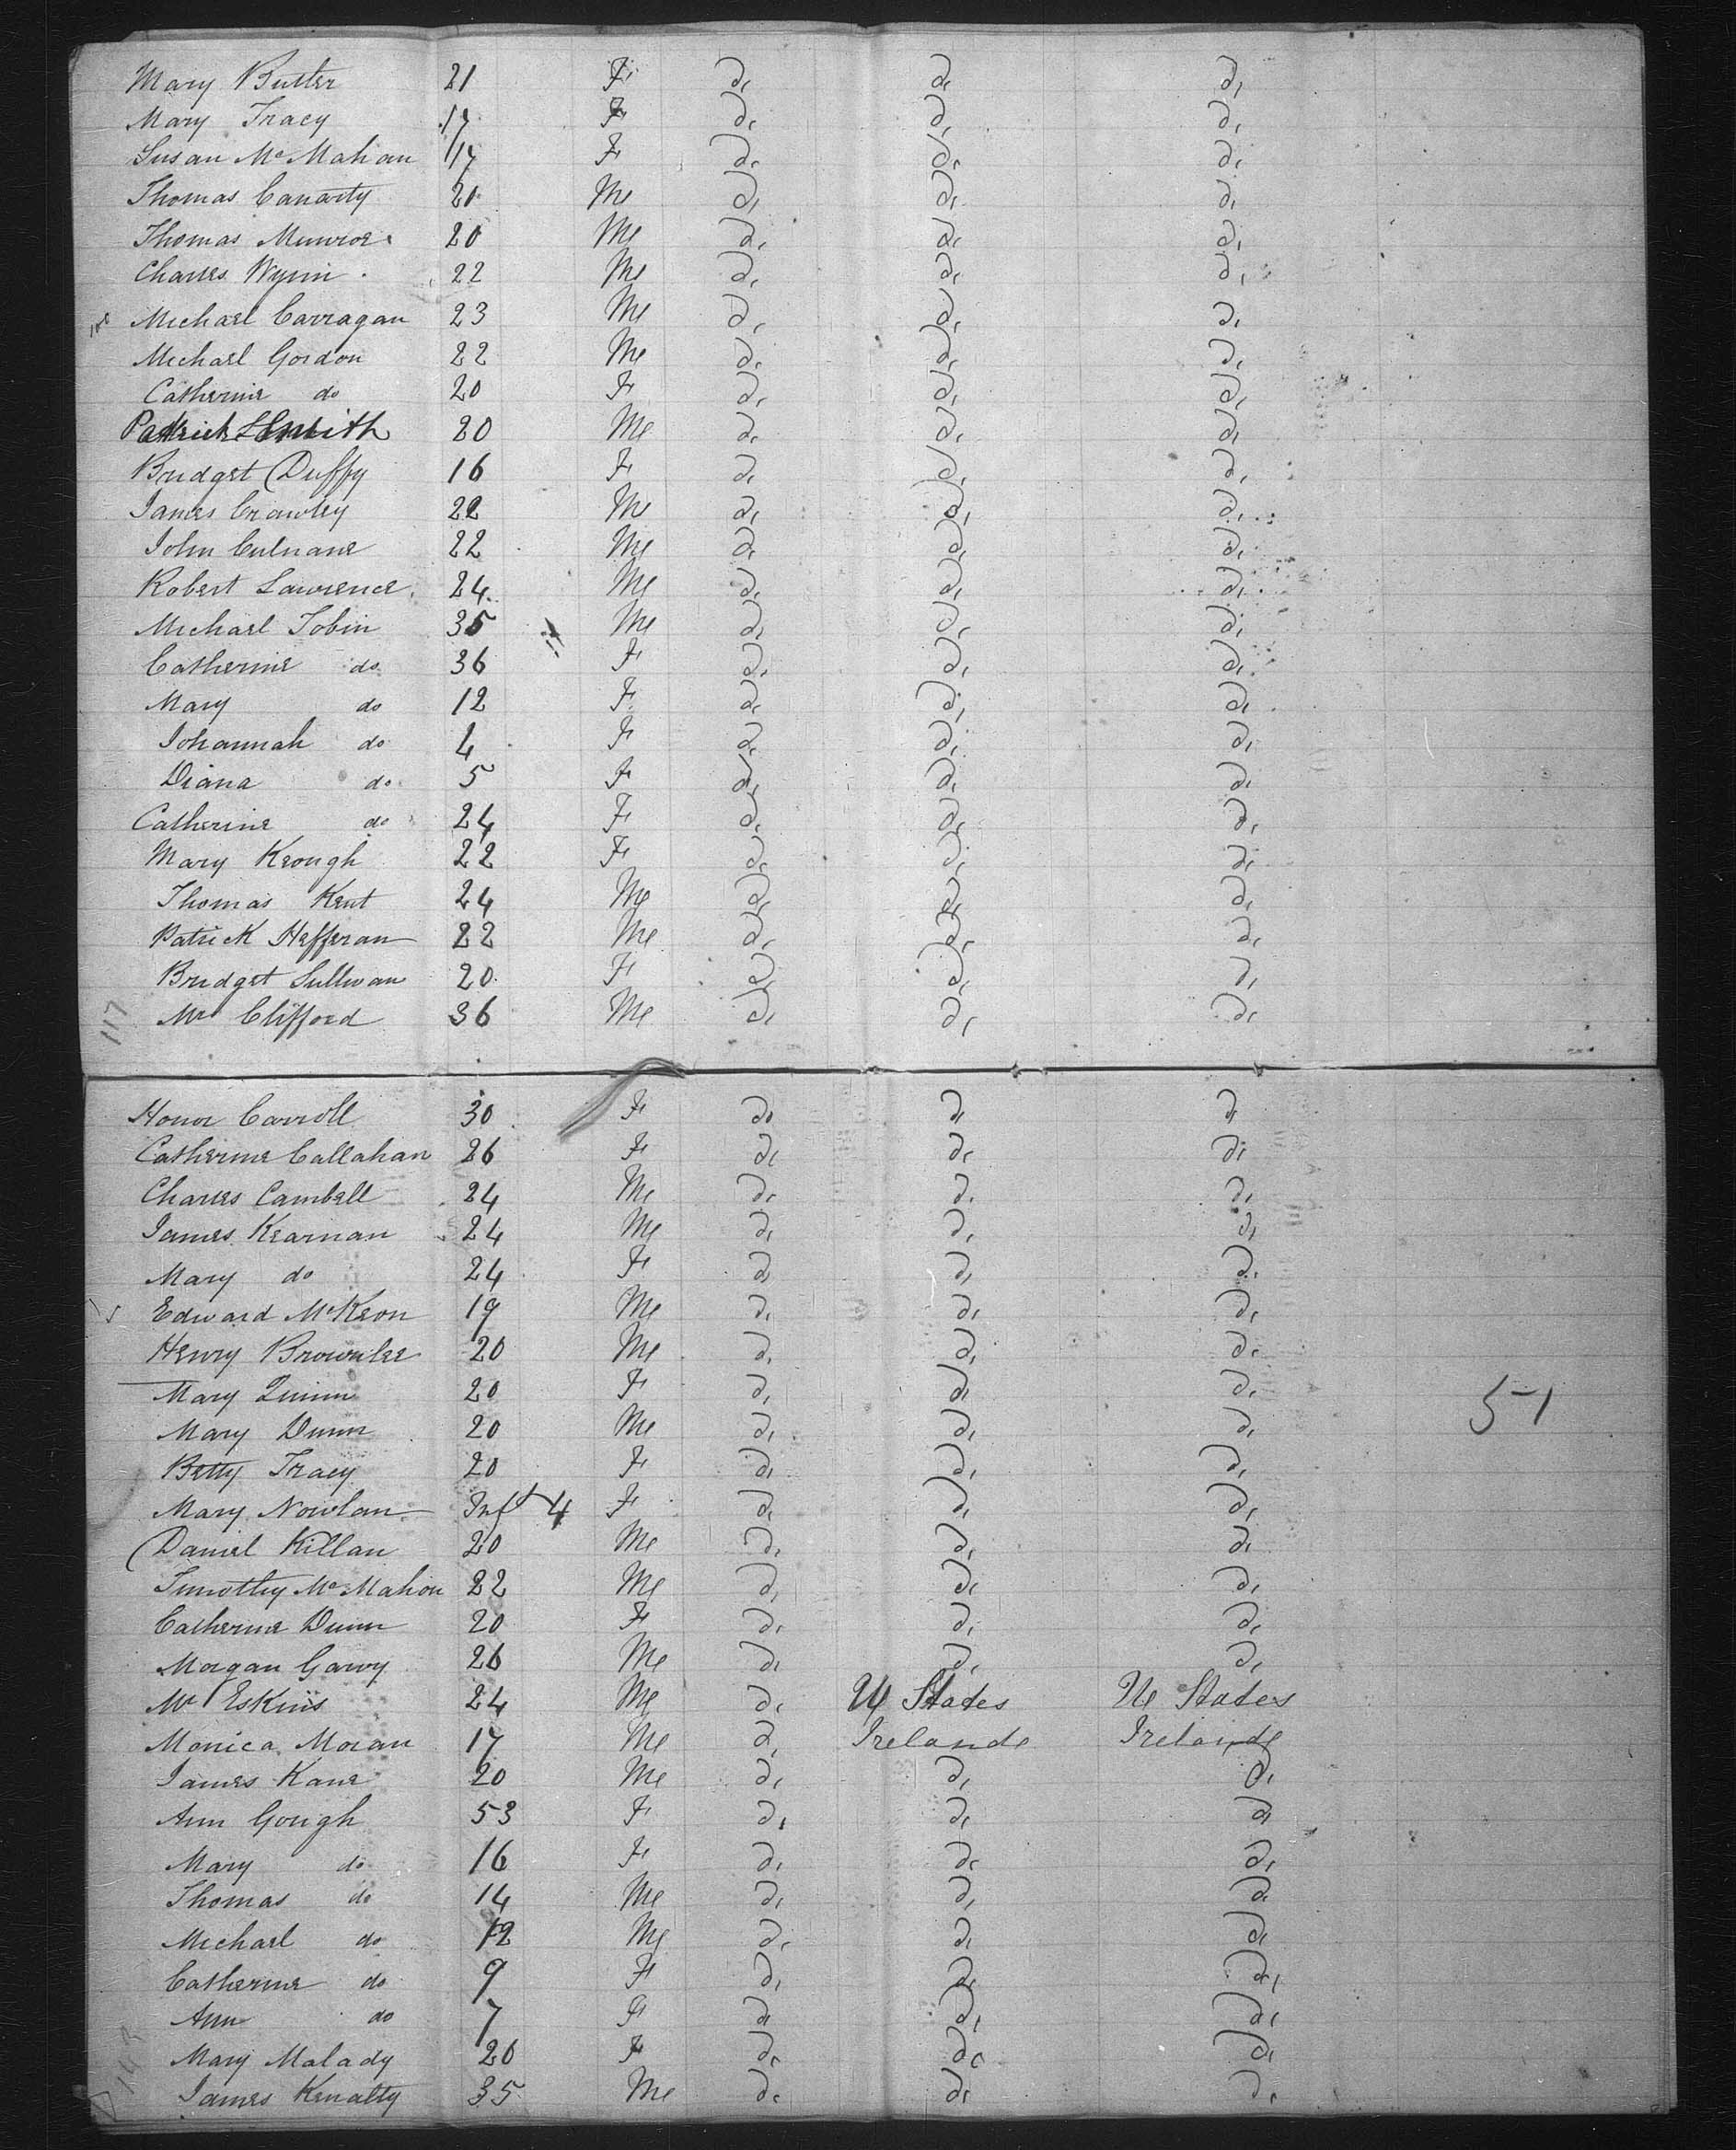 Mary Butler 21 F d, d, d,
Mary Tracy 17 F d, d, d,
Susan McMahan 17 F d, d, d,
Thomas Canarty 20 Me d, d, d,
Thomas Munroe 20 Me d, d, d,
Charles Wynn 22 Me d, d, d,
Michael Carragan 23 Me d, d, d,
Michael Gordon 22 Me d, d, d,
Catherine do 20 F d, d, d,
Patrick Smith 20 Me d, d, d,
Bridget Duffy 16 F d, d, d,
James Crawley 22 Me d, d, d,
John Culnane 22 Me d, d, d,
Robert Lawrence 24 Me d, d, d,
Michael Tobin 35 Me d, d, d,
Catherine do 36 F d, d, d,
Mary do 12 F d, d, d,
Johannah do 4 F d, d, d,
Diana do 5 F d, d, d,
Catherine do 24 F d, d, d,
Mary Keough 22 F d, d, d,
Thomas Kent 24 Me d, d, d,
Patrick Hefferan 22 Me d, d, d,
Bridget Sullivan 20 F d, d, d,
117 Mr Clifford 36 Me d, d, d,
Honor Carroll 30 F d, d, d,
Catherine Callahan 26 F d, d, d,
Charles Cambell 24 Me d, d, d,
James Kearnan 24 Me d, d, d,
Mary do 24 F d, d, d,
Edward McKeon 19 Me d, d, d,
Henry Brownlee 20 Me d, d, d,
Mary Quinn 20 F d, d, d,
51
Mary Dunn 20 Me d, d, d,
Betty Tracy 20 F d, d, d,
Mary Nowlan Inft 4 F d, d, d,
Daniel Killan 20 Me d, d, d,
Timothy McMahon 22 Me d, d, d,
Catherine Dunn 20 F d, d, d,
Morgan Garvy 26 Me d, d, d,
Mr Eskins 24 Me d, U States U States
Monica Moran 17 Me d, Irelande Irelande
James Kane 20 Me d, d, d,
Ann Gough 53 F d, d, d,
Mary do 16 F d, d, d,
Thomas do 14 Me d, d, d,
Michael do 12 Me d, d, d,
Catherine do 9 F d, d, d,
Ann do 7 F d, d, d,
Mary Malady 20 F d, d, d,
James Kenalty 35 Me d, d, d,